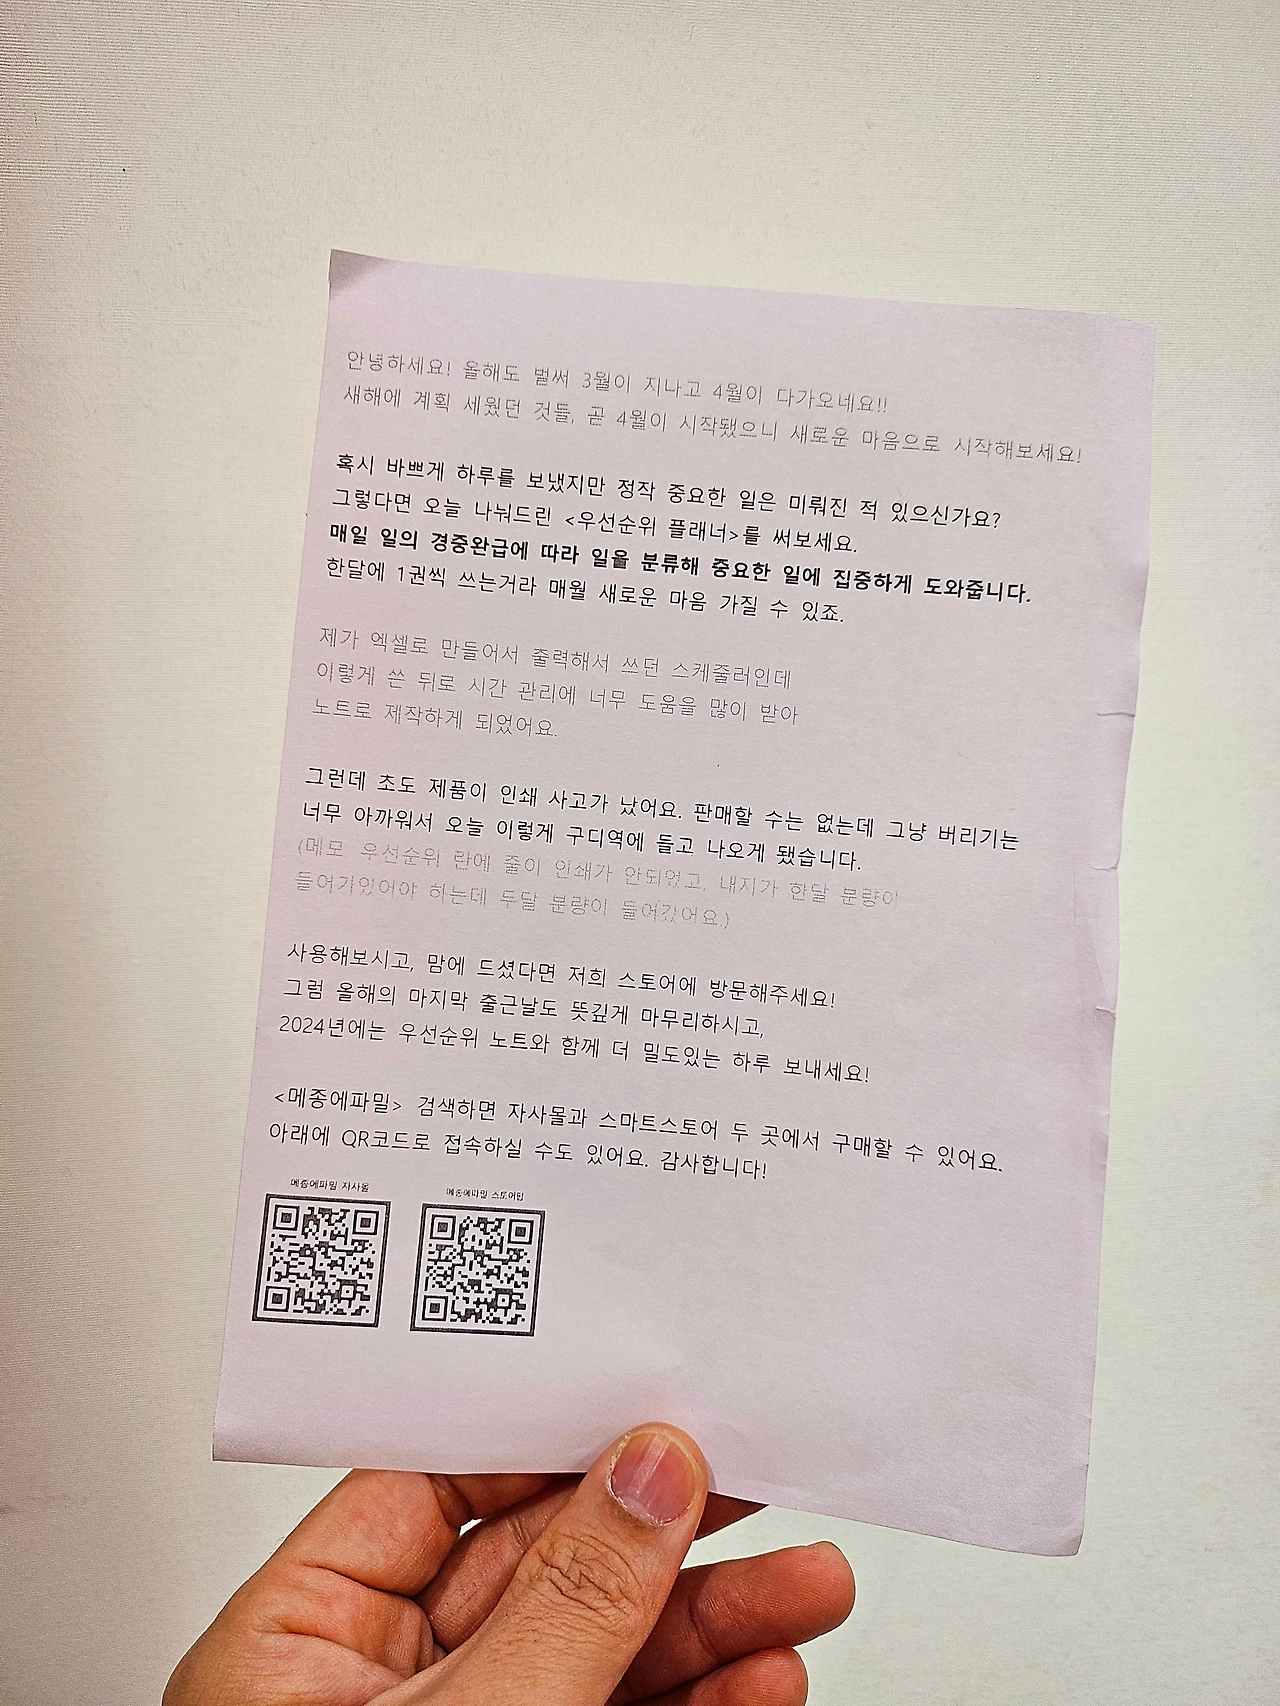 안녕하세요! 올해도 벌써 3월이 지나고 4월이 다가오네요!!
새해에 계획 세웠던 것들, 곧 4월이 시작됐으니 새로운 마음으로 시작해보세요!
혹시 바쁘게 하루를 보냈지만 정작 중요한 일은 미뤄진 적 있으신가요?
그렇다면 오늘 나눠드린 <우선순위 플래너>를 써보세요.
매일 일의 경중완급에 따라 일을 분류해 중요한 일에 집중하게 도와줍니다.
한달에 1권씩 쓰는거라 매월 새로운 마음 가질 수 있죠.
제가 엑셀로 만들어서 출력해서 쓰던 스케줄러인데
이렇게 쓴 뒤로 시간 관리에 너무 도움을 많이 받아
노트로 제작하게 되었어요.
그런데 초도 제품이 인쇄 사고가 났어요. 판매할 수는 없는데 그냥 버리기는
너무 아까워서 오늘 이렇게 구디역에 들고 나오게 됐습니다.
(메모, 우선순위 란에 줄이 인쇄가 안되었고, 내지가 한달 분량이
들어가있어야 하는데 두달 분량이 들어갔어요.)
사용해보시고, 맘에 드셨다면 저희 스토어에 방문해주세요!
그럼 올해의 마지막 출근날도 뜻깊게 마무리하시고,
2024년에는 우선순위 노트와 함께 더 밀도있는 하루 보내세요!
<메종에파밀> 검색하면 자사몰과 스마트스토어 두 곳에서 구매할 수 있어요.
아래에 QR코드로 접속하실 수도 있어요. 감사합니다!
메종에파밀 자사몰
메종에파밀 스토어팜